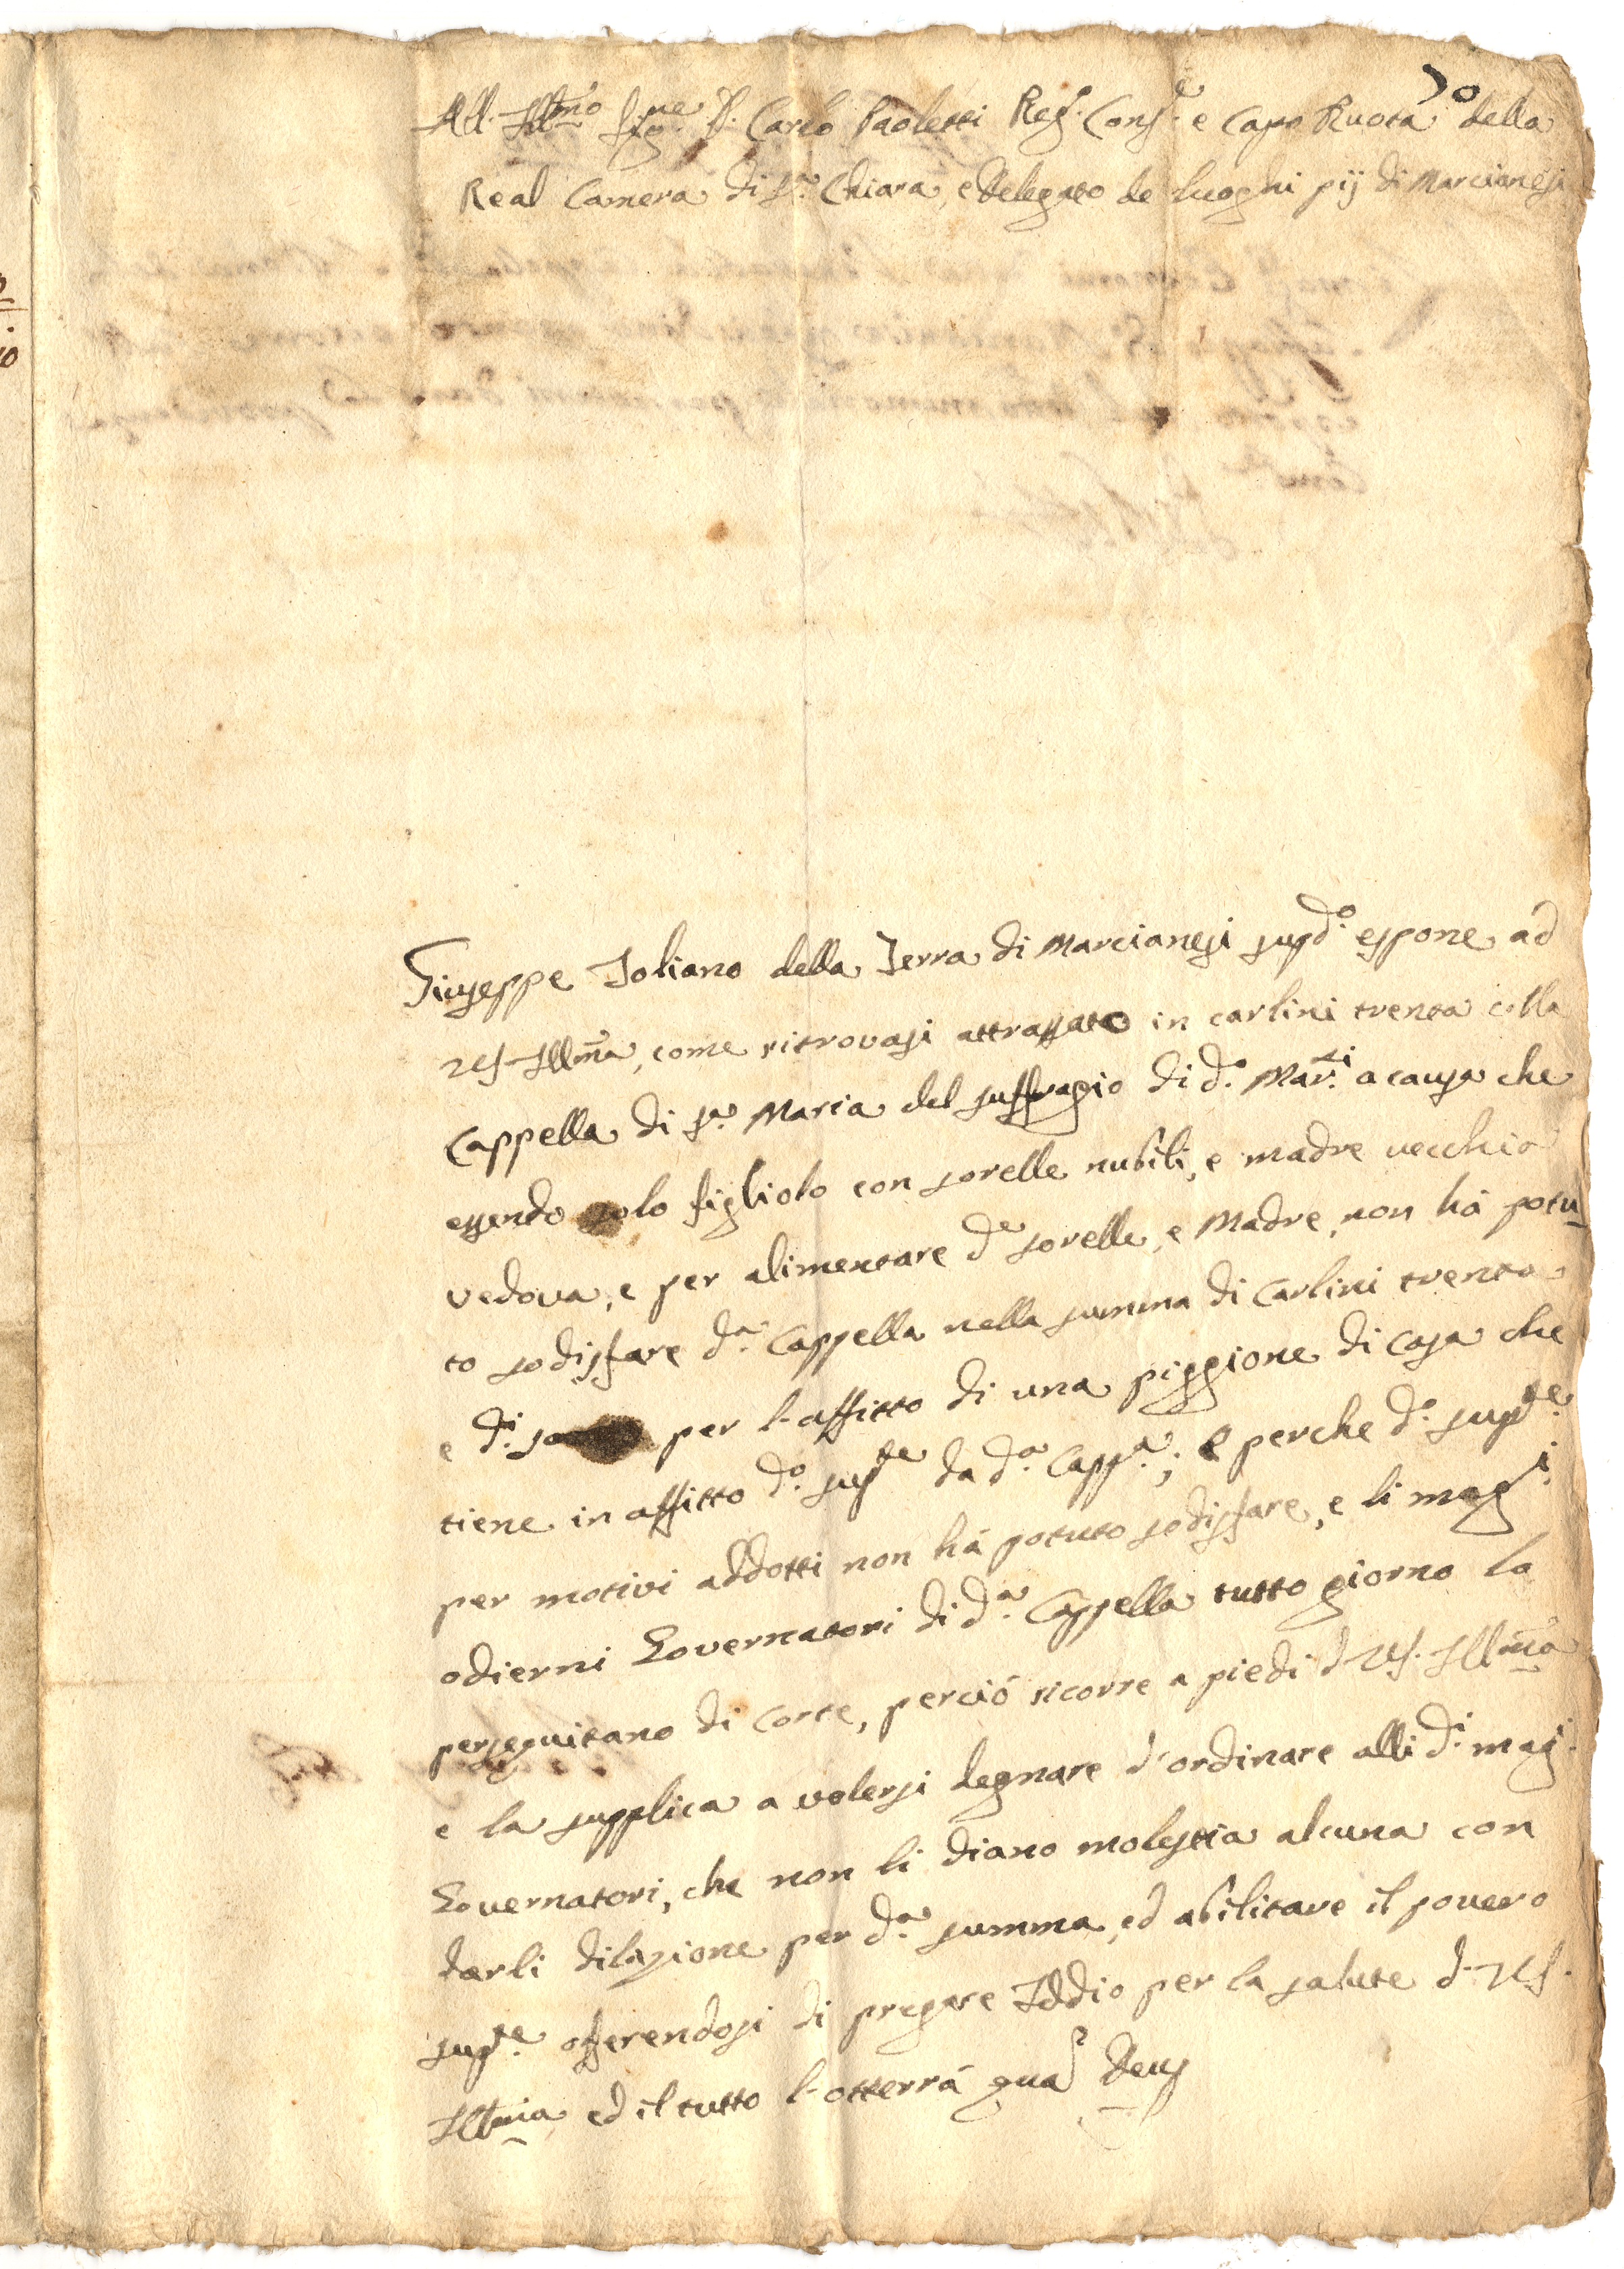 70
All. Ill.mo Sig.re D. Carlo Paoletti Reg.o Cons.re e Capo Ruota della
Real Camera di S.a Chiara, e Delegato de luoghi pij di Marcianesi
Giuseppe Toliano della Terra di Marcianesi supd.o espone ad
VS. Ill.ma, come ritrovasi attrassato in carlini trenta colla
Cappella di S.a Maria del suffragio di d.o Mar.si a causa che
essendo solo figliolo con sorelle nubili, e madre vecchia
vedova, e per alimentare d.e sorelle, e Madre, non hà potu-
to sodisfare d.a Cappella nella summa di Carlini trenta
e d.i per l'affitto di una piggione di casa che
tiene in affitto d.o sup.te da d.a Capp.a; e perche d.o sup.te
per motivi addotti non hà potuto sodisfare, e li mag.i
odierni Governatori di d.a Cappella tutto giorno lo
perseguitano di Corte, perciò ricorre a piedi d. VS. Ill.ma
e la supplica a volersi degnare d'ordinare alli d.i mag.i
Governatori, che non li diano molestia alcuna con
darli dilazione per d.a summa, ed abilitare il povero
sup.te offerendosi di pregare Iddio per la salute d. VS.
Ill.ma ed il tutto l'otterrà qua Deus